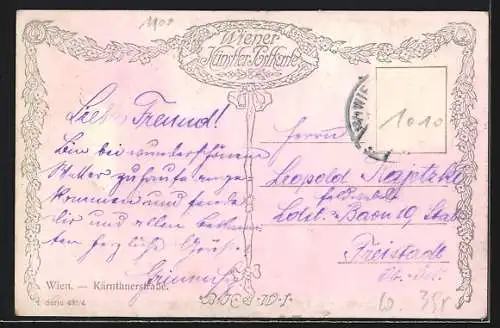 1908
Wiener
Künstler-Postkarte
Lieber Freund!
Bin bei wunderschönem
Wetter zuhause ange
kommen und sende
dir und allen bekann
ten herzliche Grüße
Herrn
Leopold
Ldst. Baon 10, Stab
Freistadt
Ob. Öst.
1010
Wien. — Kärntnerstraße.
Serie
B.K.W.I.
60 35r